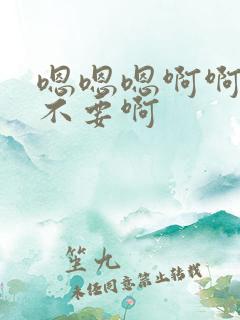 嗯嗯嗯啊啊
不要啊
坐九
未经同意禁止转载